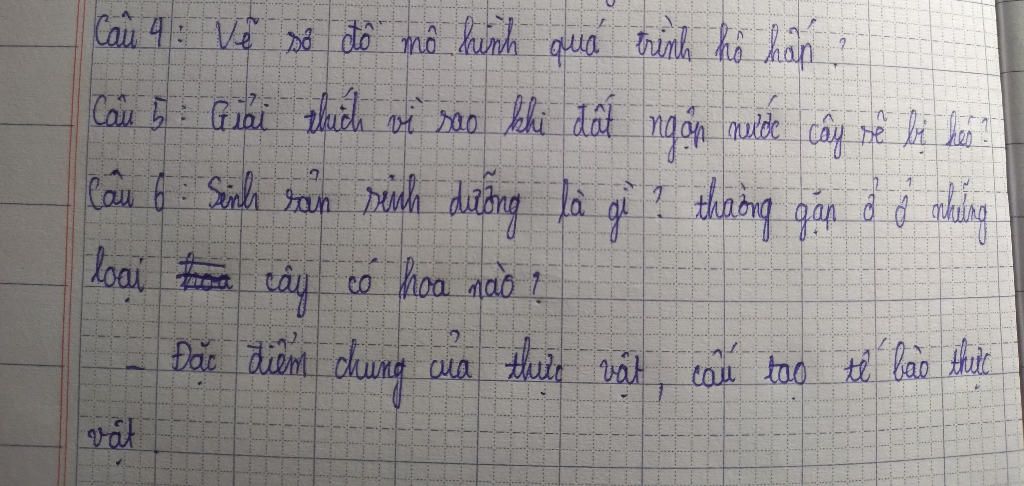 Câu 4: Vẽ sơ đồ mô hình quá trình hô hấp?
Câu 5: Giải thích vì sao khi đất ngập nước cây sẽ bị héo?
Câu 6: Sinh sản sinh dưỡng là gì? thường gặp ở ở những
loại cây có hoa nào?
- Đặc điểm chung của thực vật, cấu tạo tế bào thực
vật